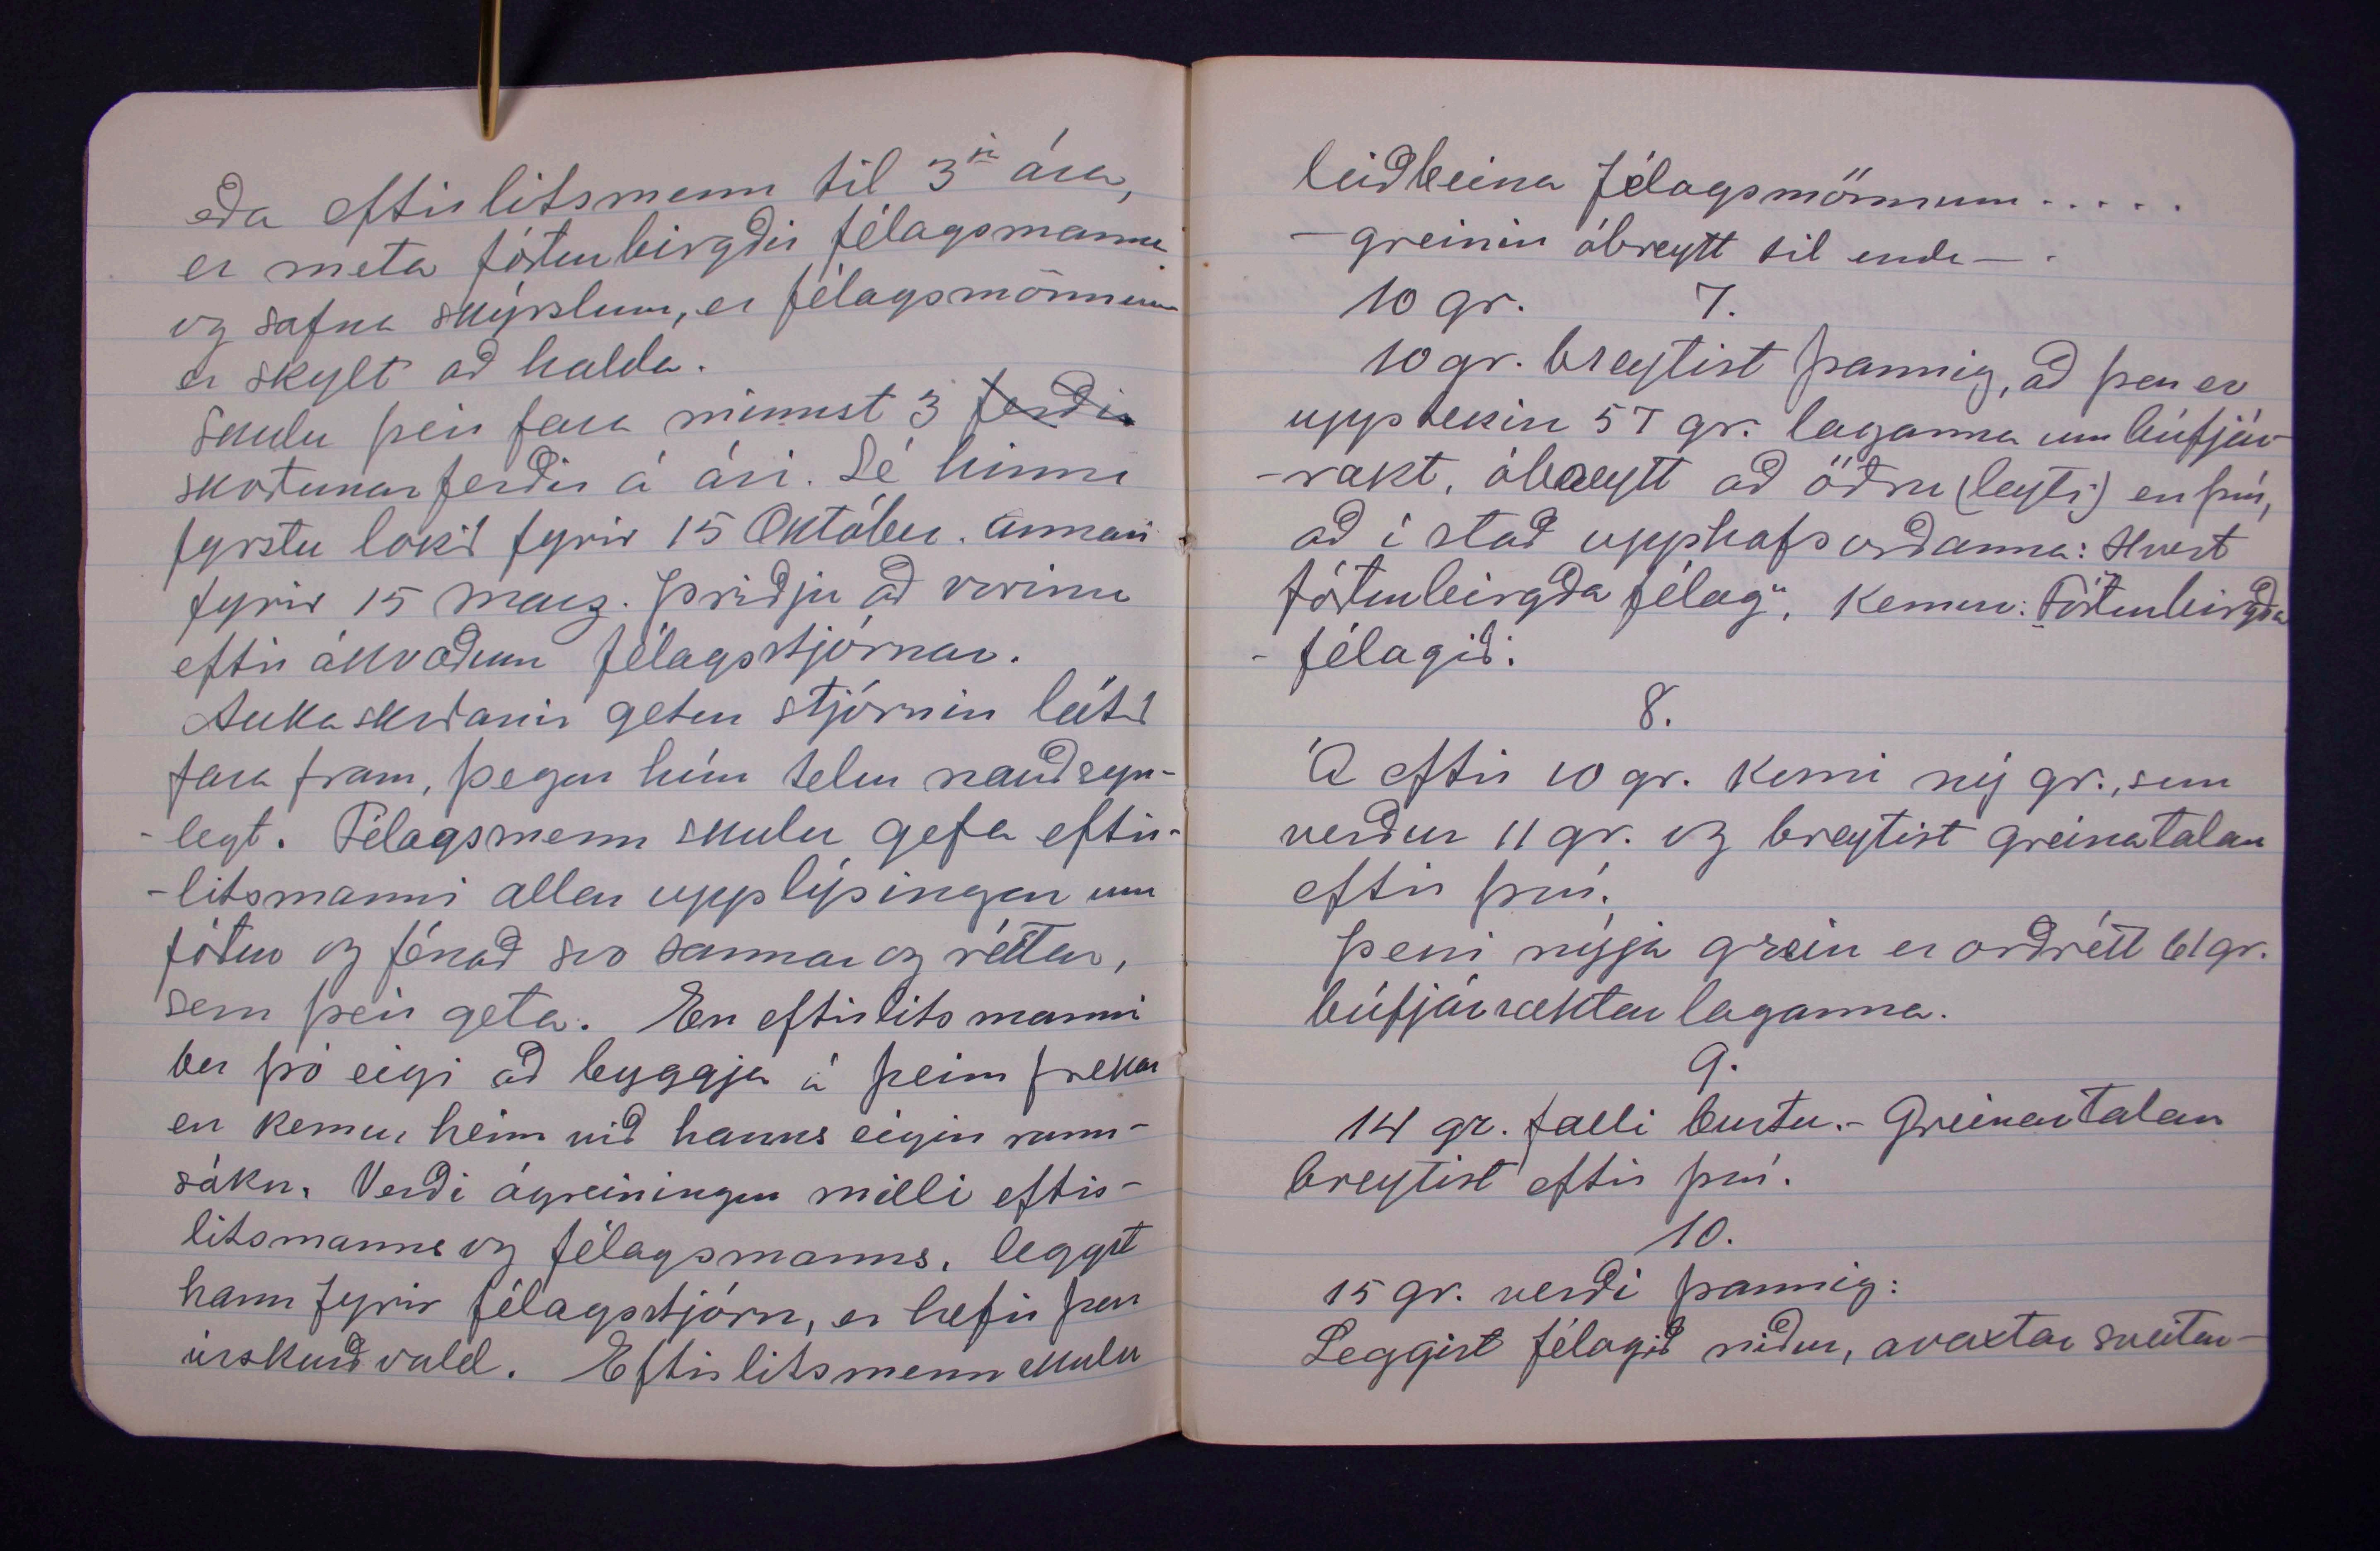 eða eftirlitsmenn til 3ja ára,
er meta fóðurbirgðir félagsmanna
og safna skýrslum, er félagsmönnum
er skylt að halda.
Skulu þeir fara minnst 3 ferðir
skoðunarferðir á ári. Sé hinni
fyrstu lokið fyrir 15 Október. annari
fyrir 15 marz. þriðju að vorinu
eftir ákvæðum félagsstjórnar.
Aukaskoðanir getur stjórnin látið
fara fram, þegar hún telur nauðsyn-
-legt. Félagsmenn skulu gefa eftir-
-litsmanni allar upplýsingar um
fóður og fénað svo sannar og réttar,
sem þeir geta. En eftirlitsmanni
ber þó eigi að byggja á þeim frekar
en kemur heim við hanns eigin rann-
sókn. Verði ágreiningur milli eftir-
litsmanns og félagsmanns, leggst
hann fyrir félagsstjórn, er hefir þar
úrskurðvald. Eftirlitsmenn skulu
leiðbeina félagsmönnum.....
- greinin óbreytt til enda - .
10 gr. 7.
10 gr. breytist þannig, að þar er
upptekin 57 gr. laganna um búfjár-
-rækt, óbreytt að öðru (leyti) en því,
að í stað upphafsorðanna: Hvert
fóðurbirgðafélag", kemur: Fóðurbirgða
- félagið.
8.
Á eftir 10 gr. komi ný gr., sem
verður 11 gr. og breytist greinatalan
eftir því.
Þessi nýja grein er orðrétt 61 gr.
búfjárræktarlaganna.
9.
14 gr. falli burtu. - Greinartalan
breytist eftir því.
10.
15 gr. verði þannig:
Leggist félagið niður, ávaxtar sveitar-